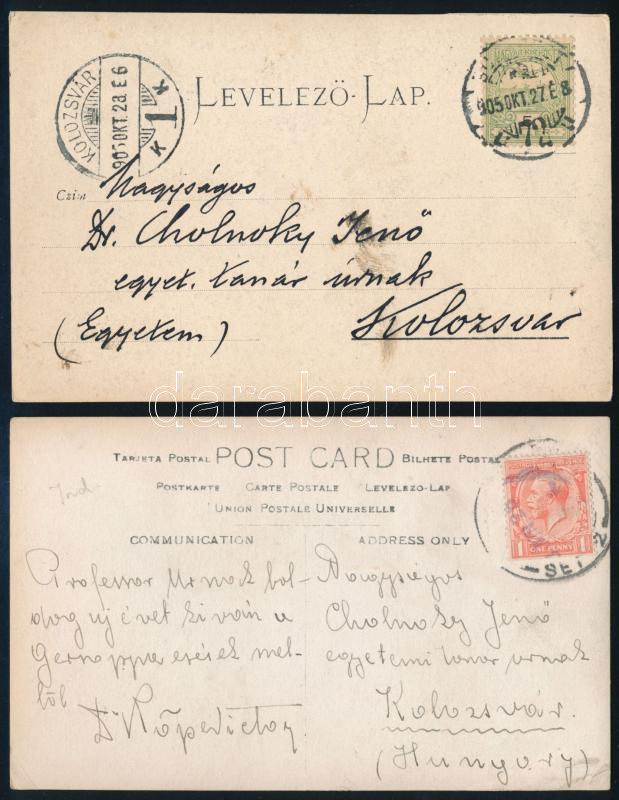 LEVELEZŐ-LAP.
KOLOZSVÁR
905 OKT. 28. É 6
905 OKT. 27. É 8
72
Czim
Nagyságos
Dr. Cholnoky Jenő
egyet. tanár úrnak
(Egyetem) Kolozsvár
darabanth
TARJETA POSTAL POST CARD BILHETE POSTAL
POSTKARTE CARTE POSTALE LEVELEZO-LAP
UNION POSTALE UNIVERSELLE
COMMUNICATION
ADDRESS ONLY
ONE PENNY
Professor Urnak bol-
dog uj évet kiván a
mel-
től
Nagyságos
Cholnoky Jenő
egyetemi tanar urnak
Kolozsvár.
(Hungory)